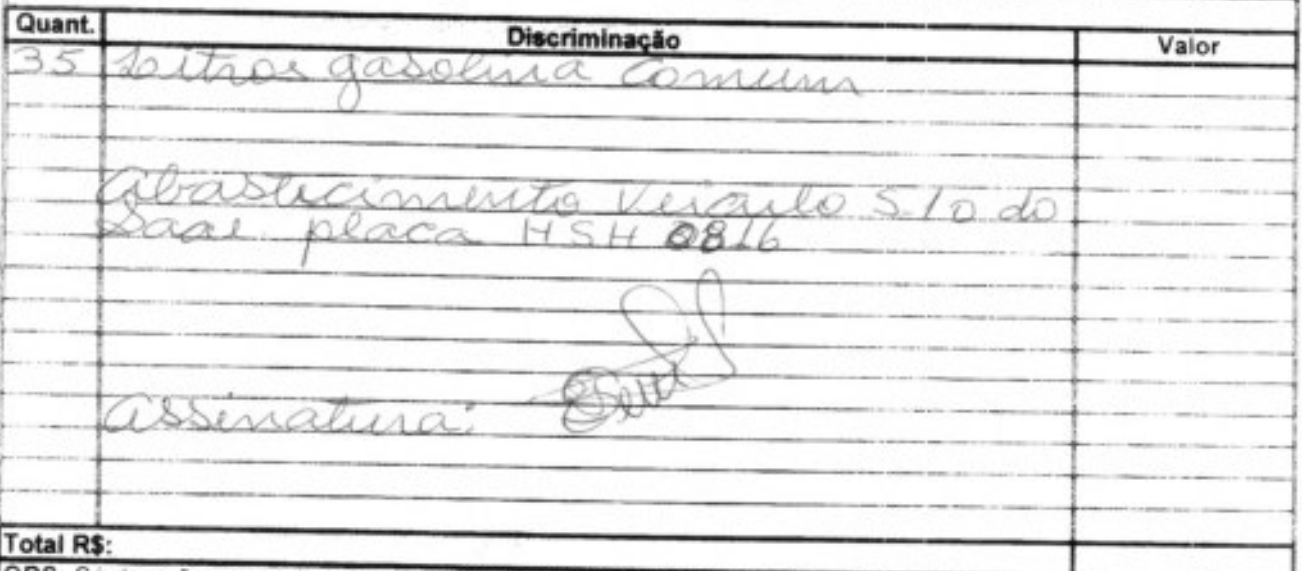 Quant. Discriminação Valor
35 Litros gasolina comum
abastecimento Veiculo S10 do
Saae placa HSH 0816
assinatura:
Total R$: